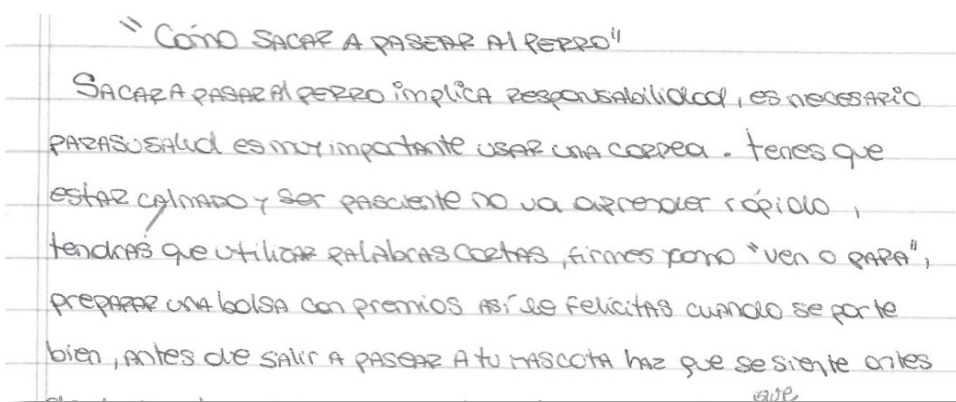 "Cómo SACAR A PASEAR Al PERRO"
SACAR A PASAR Al PERRO implica Responsabilidad, es necesario
PARA SU SAlud es muy importante usar una correa. tenes que
estar calmado y ser pasciente no va aprender rápido,
tendrás que utilizar palabras cortas, firmes como "ven o PARA",
preparar una bolsa con premios Así le felicitas cuando se porte
bien, Antes de salir A PASEAR A tu mascota haz que se siente antes
que